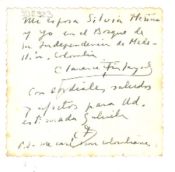 Mi esposa Silvia Mejía
y yo en el Bosque de
la Independencia de Mede-
llín, Colombia
Con cordiales saludos
y afectos para Ud.
estimada Gabriela
P.S. me casé con colombiana.